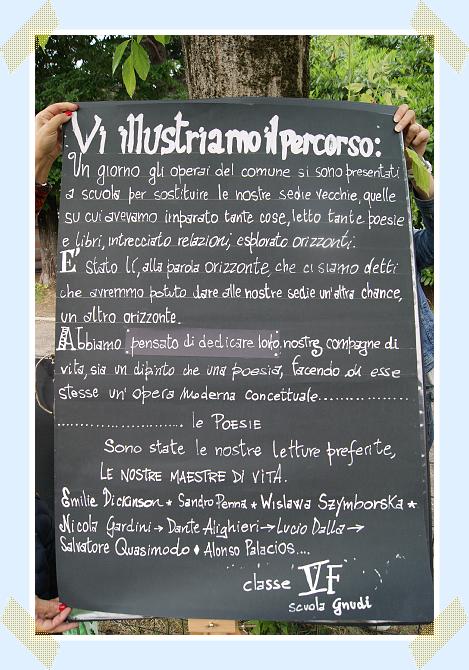 Vi illustriamo il percorso:
Un giorno gli operai del comune si sono presentati
a scuola per sostituire le nostre sedie vecchie, quelle
su cui avevamo imparato tante cose, letto tante poesie
e libri, intrecciato relazioni, esplorato orizzonti.
E' stato lí, alla parola orizzonte, che ci siamo detti
che avremmo potuto dare alle nostre sedie un'altra chance,
un altro orizzonte.
Abbiamo pensato di dedicare loro, nostre compagne di
vita, sia un dipinto che una poesia, facendo di esse
stesse un' opera moderna concettuale..................
......................... le POESIE
Sono state le nostre letture preferite,
LE NOSTRE MAESTRE DI VITA.
Emilie Dickinson * Sandro Penna * Wislawa Szymborska *
Nicola Gardini → Dante Alighieri → Lucio Dalla →
Salvatore Quasimodo ♦ Alonso Palacios....
classe VF
scuola Gnudi